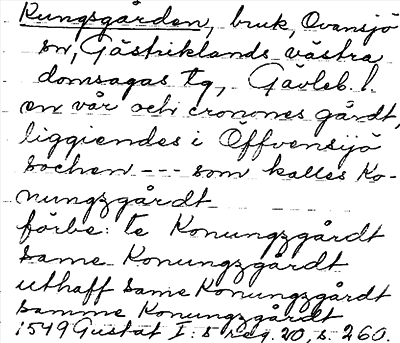 Kungsgården, bruk, Ovansjö
sn, Gästriklands västra
domsagas tg, Gävleb. l.
en vår och cronones gårdt,
liggiendes i Öffvensijö
sochen --- som kalles Ko-
nungzgårdt
förbe: te Konungzgårdt
same Konungzgårdt
uthaff same Konungzgårdt
samme Konungzgårdt
1549 Gustaf I:s reg. 20, s. 260.